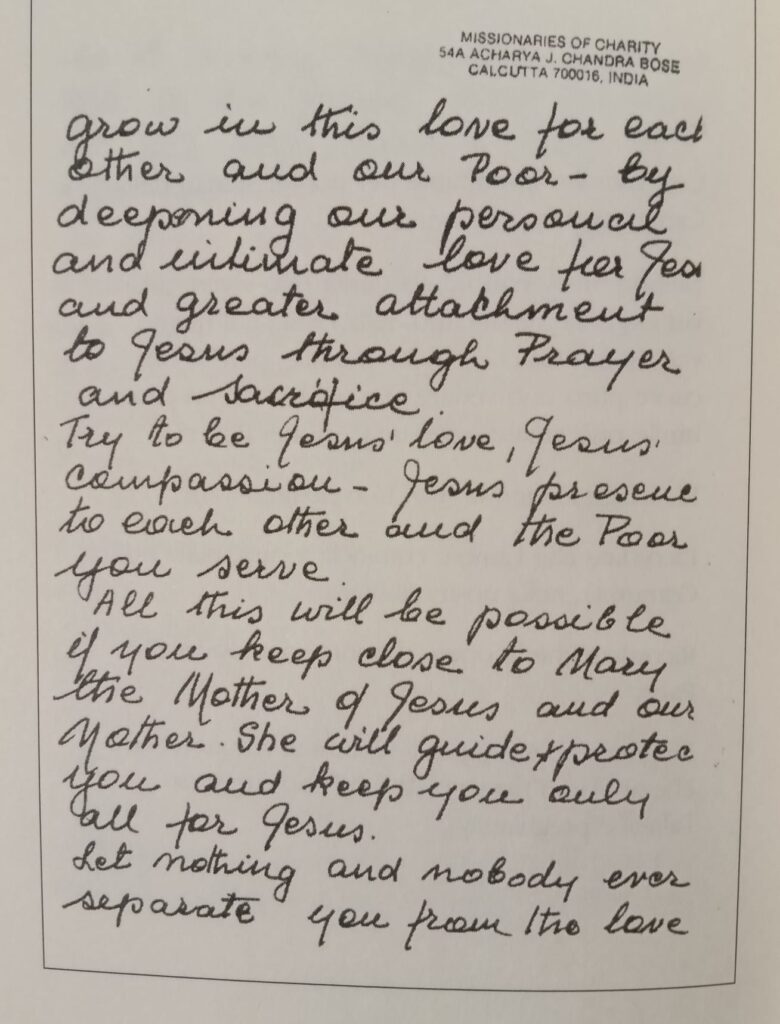 MISSIONARIES OF CHARITY
54A ACHARYA J. CHANDRA BOSE
CALCUTTA 700016, INDIA
grow in this love for each
other and our Poor - by
deepening our personal
and intimate love for Jesu
and greater attachment
to Jesus through Prayer
and sacrifice.
Try to be Jesus' love, Jesus'
compassion - Jesus presenc
to each other and the Poor
you serve.
All this will be possible
if you keep close to Mary
the Mother of Jesus and our
Mother. She will guide + protec
you and keep you only
all for Jesus.
Let nothing and nobody ever
separate you from the love